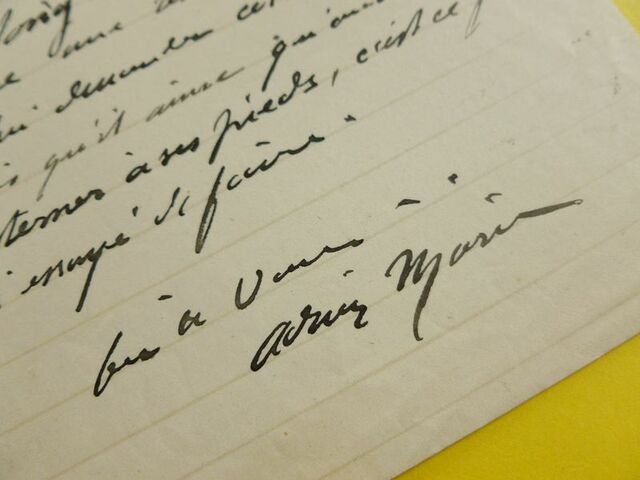 long
une
lui demander
qu'il aime qu'on
sterner à ses pieds, c'est ce
essayé de faire.
bien à vous
Adrien Marie